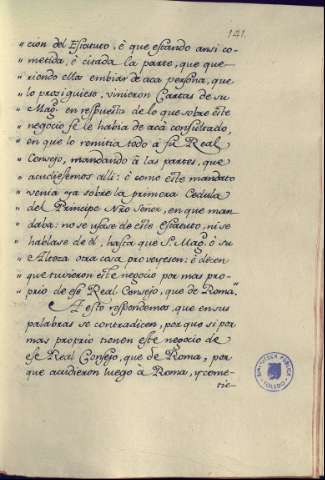 141.
"cion del Estatuto, è que estando ansi co-
"metida, è citada la parte, que que-
"riendo ellos embiar de acà persona, que
"lo prosiguiese, vinieron Cartas de su
"Mag.d en respuesta de lo que sobre este
"negocio se le habia de acà consultado,
"en que lo remitia todo à su Real
"Consejo, mandando à las partes, que
"acudiesemos alli: è como este mandato
"venia ya sobre la primera Cedula
"del Principe Nro Señor, en que man-
"daba: no se usase de este Estatuto, ni se
"hablase de el, hasta que S. Mag.d ò su
"Alteza otra cosa proveyesen: è dicen
"que tuvieron este negocio por mas pro-
"prio de ese Real Consejo, que de Roma"
A esto respondemos, que en sus
palabras se contradicen, por que si por
mas proprio tienen este negocio de
ese Real Consejo, que de Roma, por
que acudieron luego à Roma, y come-
tie-
BIBLIOTECA PUBLICA
TOLEDO